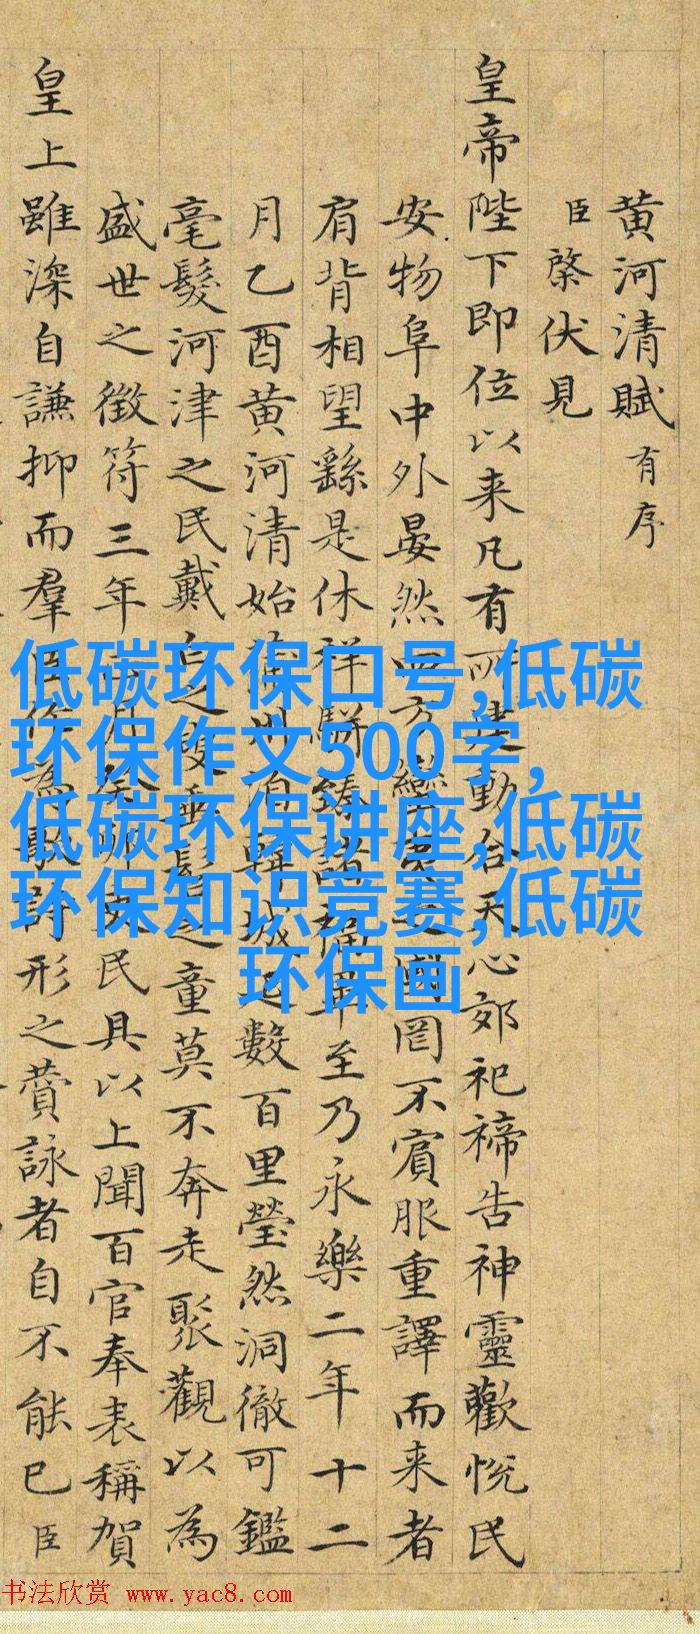 黄河清賦有序
臣棨伏見
皇帝陛下即位以来凡有所建動合天心郊祀禘告神靈歡悅民
安物阜中外晏然四方蠻夷
罔不賓服重譯而来者
肩背相望繇是休祥駢臻諸福畢至乃永樂二年十二
月乙酉黄河清始
數百里瑩然洞徹可鑑
毫髮河津之民戴白之叟垂髫之童莫不奔走聚觀以為
盛世之徵符三年
民具以上聞百官奉表稱賀
皇上雖深自謙抑而羣臣作為歌詩形之賛詠者自不能已臣
低碳环保口号,低碳
环保作文500字,
低碳环保讲座,低碳
环保知识竞赛,低碳
环保画
书法欣赏 www.yac8.com